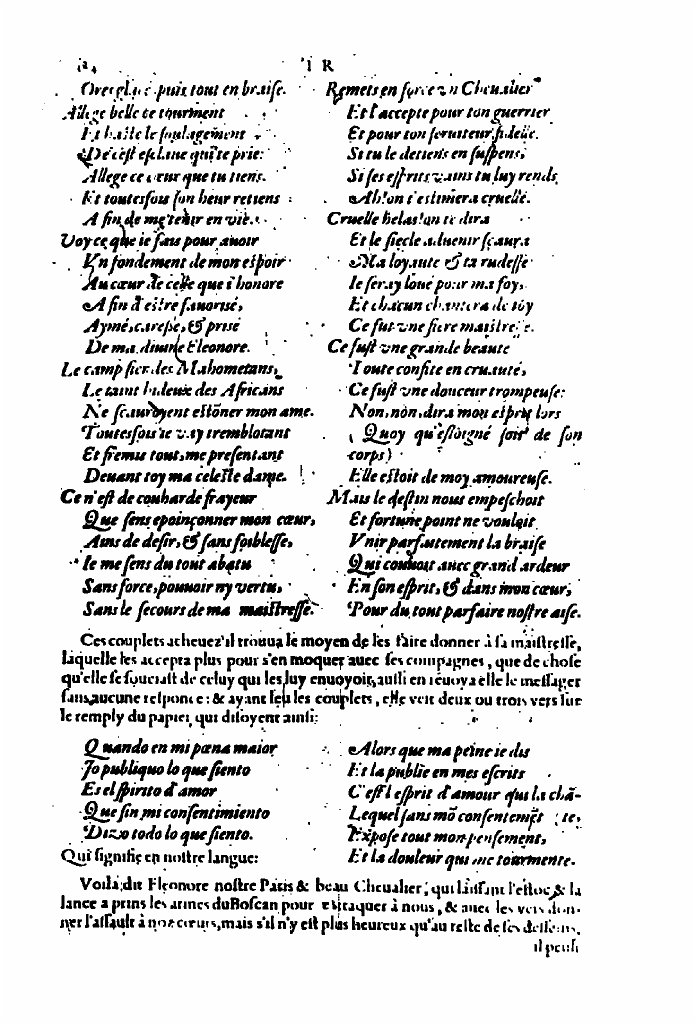 I R
puis tout en braise.
Allege belle ce tourment
Et haste le soulagement
De cest esclaue qui te prie:
Allege ce cœur que tu tiens.
Et toutesfois son heur retiens
A fin de me tenir en vie.
Voy ce que ie fais pour auoir
Vn fondement de mon espoir
Au cœur de celle que i'honore
A fin d'estre fauorisé,
Aymé, caressé, & prisé
De ma diuine Eleonore.
Le camp fier des Mahometans,
Le taint hideux des Africans
Ne sçauroyent estõner mon ame.
Toutesfois ie vay tremblotant
Et fremis tout, me presentant
Deuant toy ma celeste dame.
Ce n'est de couharde frayeur
Que sens epoinçonner mon cœur,
Ains de desir, & sans foiblesse,
Ie me sens du tout abatu
Sans force, pouuoir ny vertu,
Sans le secours de ma maistresse.
Remets en force vn Cheualier
Et l'accepte pour ton guerrier
Et pour ton seruiteur fidelle.
Si tu le detiens en suspens,
Si ses esprits vains tu luy rends,
Ah! on t'estimera cruelle.
Cruelle helas! on te dira
Et le siecle aduenir sçaura
Ma loyauté & ta rudesse
Ie seray loué pour ma foy,
Et chacun chantera de toy
Ce fut vne fiere maistresse.
Ce fust vne grande beauté
Toute confite en cruauté,
Ce fust vne douceur trompeuse:
Non, non, dira mon esprit lors
( Quoy qu'esloigné soit de son
corps)
Elle estoit de moy amoureuse.
Mais le destin nous empeschoit
Et fortune point ne vouloit
Vnir parfaitement la braise
Qui couuoit auec grand ardeur
En son esprit, & dans mon cœur,
Pour du tout parfaire nostre aise.
Ces couplets acheuez il trouua le moyen de les faire donner à sa maistresse,
laquelle les accepta plus pour s'en moquer auec ses compagnes, que de chose
qu'elle se souciast de celuy qui les luy enuoyoit, aussi en reuoya elle le messager
sans aucune responce: & ayant leu les couplets, elle veit deux ou trois vers sur
le remply du papier, qui disoyent ainsi:
Quando en mi pœna maior
Jo publiquo lo que siento
Es el spirito d'amor
Que sin mi consentimiento
Dizo todo lo que siento.
Qui signifie en nostre langue:
Alors que ma peine ie dis
Et la publie en mes escrits
C'est l'esprit d'amour qui la chã-
Lequel sans mõ consentemẽt te,
Expose tout mon pensement,
Et la douleur qui me tourmente.
Voila, dit Eleonore nostre Paris & beau Cheualier, qui laissant l'estoc & la
lance a prins les armes du Boscan pour s'attaquer à nous, & auec les vers don-
ner l'assault à noz cœurs, mais s'il n'y est plus heureux qu'au reste de ses desseins,
il peust